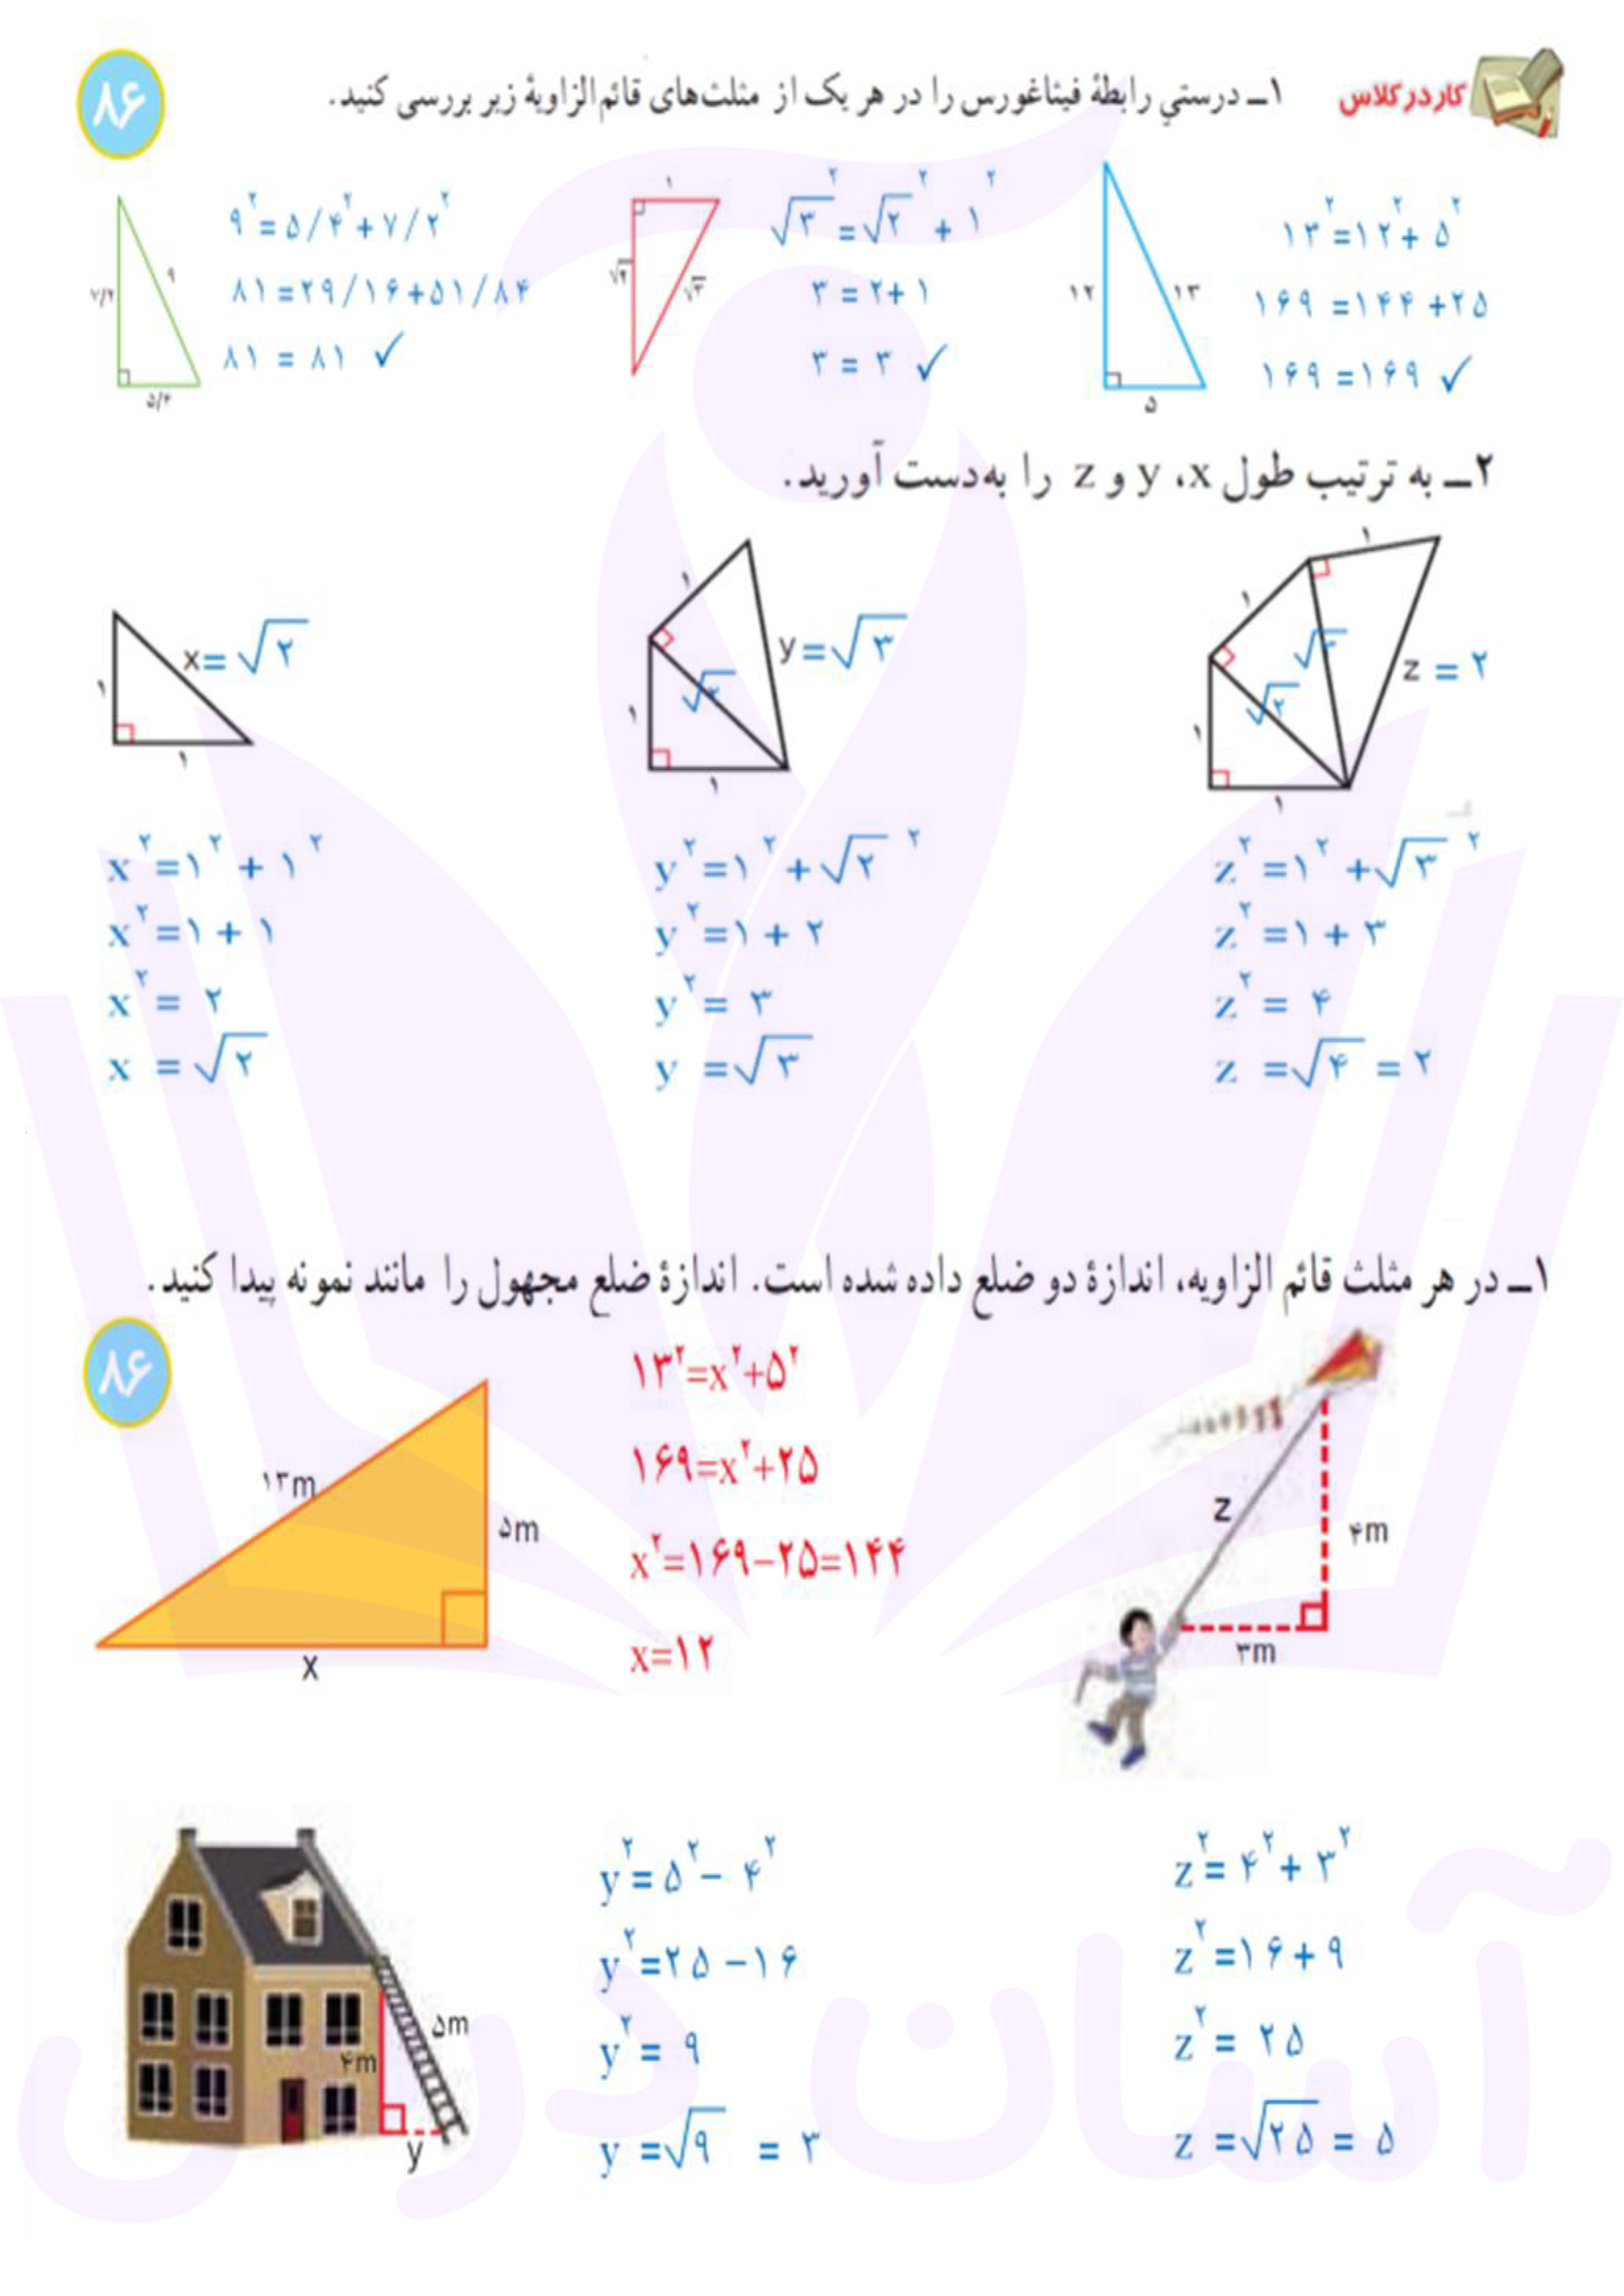 کار در کلاس
۱ــ درستیِ رابطهٔ فیثاغورس را در هر یک از مثلث‌های قائم‌الزاویهٔ زیر بررسی کنید.
۸۶
۱۲
۱۳
۵
۱۳^۲=۱۲^۲+۵^۲
۱۶۹=۱۴۴+۲۵
۱۶۹=۱۶۹ ✓
۱
√۲
√۳
√۳^۲=√۲^۲+۱^۲
۳=۲+۱
۳=۳ ✓
۷/۲
۹
۵/۴
۹^۲=۵/۴^۲+۷/۲^۲
۸۱=۲۹/۱۶+۵۱/۸۴
۸۱=۸۱ ✓
۲ــ به ترتیب طول x، y و z را به‌دست آورید.
۱
۱
x=√۲
۱
۱
√۲
۱
y=√۳
۱
۱
۱
√۲
√۳
۱
z=۲
x^۲=۱^۲+۱^۲
x^۲=۱+۱
x^۲=۲
x=√۲
y^۲=۱^۲+√۲^۲
y^۲=۱+۲
y^۲=۳
y=√۳
z^۲=۱^۲+√۳^۲
z^۲=۱+۳
z^۲=۴
z=√۴=۲
۱ــ در هر مثلث قائم الزاویه، اندازهٔ دو ضلع داده شده است. اندازهٔ ضلع مجهول را مانند نمونه پیدا کنید.
۸۶
۱۳m
۵m
x
۱۳^۲=x^۲+۵^۲
۱۶۹=x^۲+۲۵
x^۲=۱۶۹−۲۵=۱۴۴
x=۱۲
z
۴m
۳m
۵m
۴m
y
y^۲=۵^۲−۴^۲
y^۲=۲۵−۱۶
y^۲=۹
y=√۹=۳
z^۲=۴^۲+۳^۲
z^۲=۱۶+۹
z^۲=۲۵
z=√۲۵=۵
آسان درس